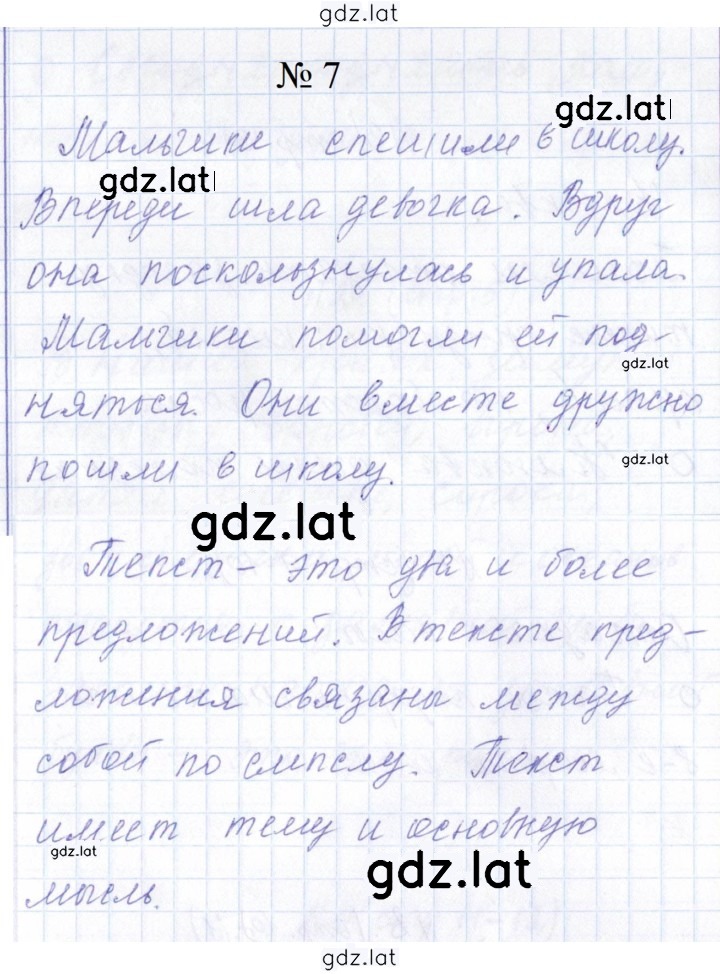 gdz.lat
№ 7
gdz.lat
Мальчики спешили в школу.
gdz.lat
Впереди шла девочка. Вдруг
она поскользнулась и упала.
Мальчики помогли ей под-
gdz.lat
няться. Они вместе дружно
пошли в школу.
gdz.lat
gdz.lat
Текст - это два и более
предложений. В тексте пред-
ложения связаны между
собой по смыслу. Текст
имеет тему и основную
gdz.lat
gdz.lat
мысль.
gdz.lat